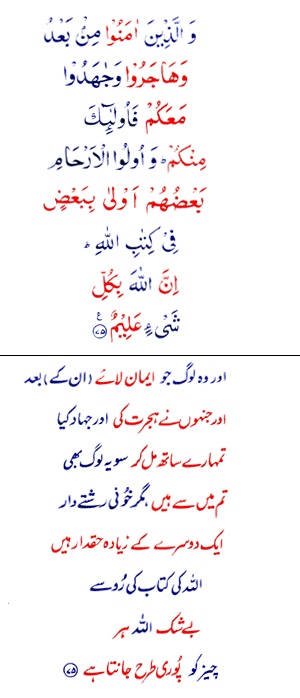 وَ الَّذِيْنَ اٰمَنُوْا مِنْۢ بَعْدُ
وَهَاجَرُوْا وَجٰهَدُوْا
مَعَكُمْ فَاُولٰٓئِكَ
مِنْكُمْ ؕ وَ اُولُوا الْاَرْحَامِ
بَعْضُهُمْ اَوْلٰى بِبَعْضٍ
فِيْ كِتٰبِ اللّٰهِ ؕ
اِنَّ اللّٰهَ بِكُلِّ
شَيْءٍ عَلِيْمٌ ﴿۷۵﴾ ع
اور وہ لوگ جو ایمان لائے (ان کے) بعد
اور جنہوں نے ہجرت کی اور جہاد کیا
تمہارے ساتھ مل کر سو یہ لوگ بھی
تم میں سے ہیں ، مگر خُونی رشتے دار
ایک دوسرے کے زیادہ حقدار ہیں
اللہ کی کتاب کی رُو سے
بے شک اللہ ہر
چیز کو پُوری طرح جانتا ہے ﴿۷۵﴾